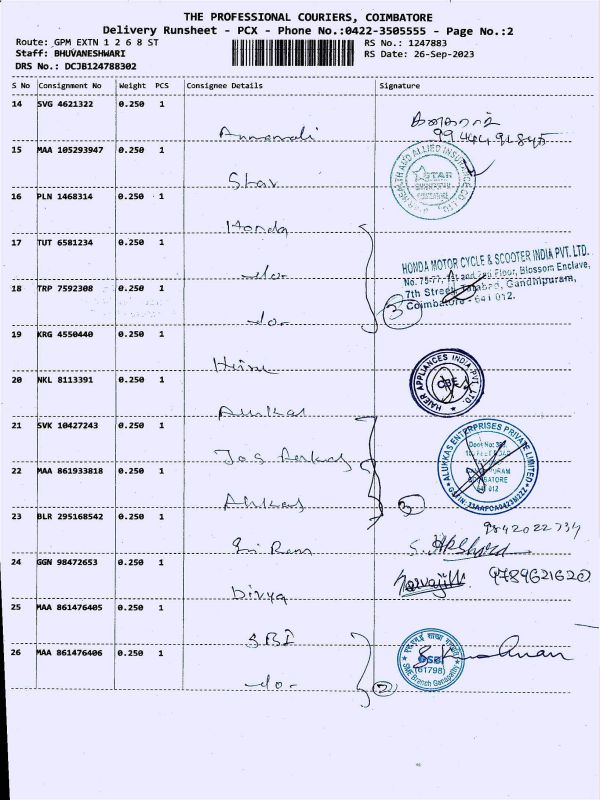 THE PROFESSIONAL COURIERS, COIMBATORE
Delivery Runsheet - PCX - Phone No.:0422-3505555 - Page No.:2
Route: GPM EXTN 1 2 6 8 ST
RS No.: 1247883
Staff: BHUVANESHWARI
RS Date: 26-Sep-2023
DRS No.: DCJB124788302
S No Consignment No Weight PCS Consignee Details Signature
14 SVG 4621322 0.250 1
Annamali
15 MAA 105293947 0.250 1
Star
STAR HEALTH AND ALLIED INSURANCE CO LTD
STAR
16 PLN 1468314 0.250 1
Honda
17 TUT 6581234 0.250 1
-do-
HONDA MOTOR CYCLE & SCOOTER INDIA PVT. LTD.
No. 75-77, 1st and 2nd Floor, Blossom Enclave,
7th Street, Tatabad, Gandhipuram,
Coimbatore - 641 012.
3
18 TRP 7592308 0.250 1
-do-
19 KRG 4550440 0.250 1
20 NKL 8113391 0.250 1
HAIER APPLIANCES INDIA PVT. LTD.
CBE
21 SVK 10427243 0.250 1
Jos Alukas
ALUKKAS ENTERPRISES PRIVATE LIMITED
COIMBATORE
641 012
22 MAA 861933818 0.250 1
Alukas
3
23 BLR 295168542 0.250 1
Sri Ram
9842022734
24 GGN 98472653 0.250 1
Divya
9789621620
25 MAA 861476405 0.250 1
SBI
26 MAA 861476406 0.250 1
-do-
2
SBI
(61798)
SME Branch Ganapathy